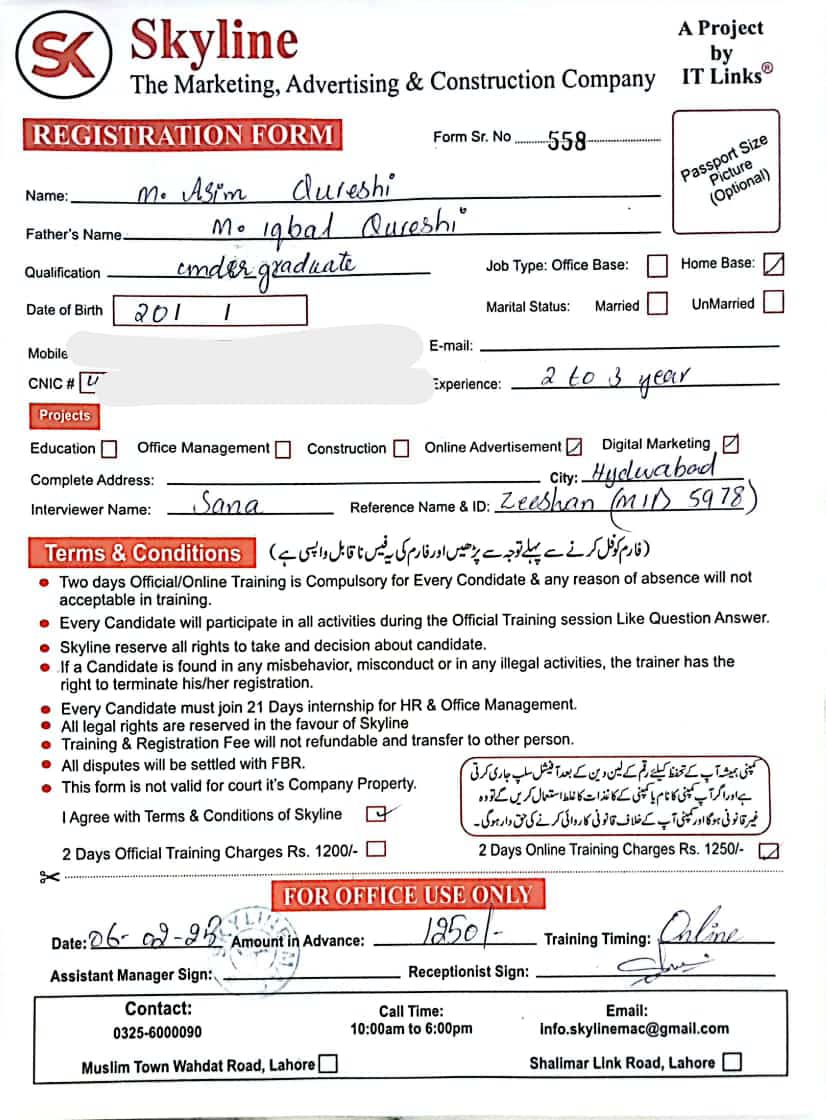 SK Skyline
The Marketing, Advertising & Construction Company
A Project
by
IT Links®
REGISTRATION FORM
Form Sr. No ........558................
Passport Size
Picture
(Optional)
Name: M. Asim Qureshi
Father's Name M. Iqbal Qureshi
Qualification undergraduate
Job Type: Office Base: Home Base:
Date of Birth 201 1
Marital Status: Married UnMarried
Mobile
E-mail:
CNIC # 4
Experience: 2 to 3 year
Projects
Education Office Management Construction Online Advertisement Digital Marketing
Complete Address: City: Hyderabad
Interviewer Name: Sana Reference Name & ID: Zeeshan (MID 5978)
Terms & Conditions (فارم کو فل کرنے سے پہلے توجہ سے پڑھیں اور فارم کی یہ فیس ناقابل واپسی ہے)
• Two days Official/Online Training is Compulsory for Every Condidate & any reason of absence will not
acceptable in training.
• Every Candidate will participate in all activities during the Official Training session Like Question Answer.
• Skyline reserve all rights to take and decision about candidate.
• If a Candidate is found in any misbehavior, misconduct or in any illegal activities, the trainer has the
right to terminate his/her registration.
• Every Candidate must join 21 Days internship for HR & Office Management.
• All legal rights are reserved in the favour of Skyline
• Training & Registration Fee will not refundable and transfer to other person.
• All disputes will be settled with FBR.
• This form is not valid for court it's Company Property.
کمپنی ہمیشہ آپ کے تحفظ کیلئے رقم کے لین دین کے بعد آفیشل سلپ جاری کرتی
ہے اور اگر آپ کمپنی کا نام یا کمپنی کے کاغذات کا غلط استعمال کریں گے تو وہ
غیر قانونی ہوگا اور کمپنی آپ کے خلاف قانونی کاروائی کرنے کی حق دار ہوگی۔
I Agree with Terms & Conditions of Skyline
2 Days Official Training Charges Rs. 1200/-
2 Days Online Training Charges Rs. 1250/-
FOR OFFICE USE ONLY
Date: 06-02-25 Amount in Advance: 1250/- Training Timing: Online
Assistant Manager Sign: Receptionist Sign:
Contact:
0325-6000090
Call Time:
10:00am to 6:00pm
Email:
Info.skylinemac@gmail.com
Muslim Town Wahdat Road, Lahore
Shalimar Link Road, Lahore